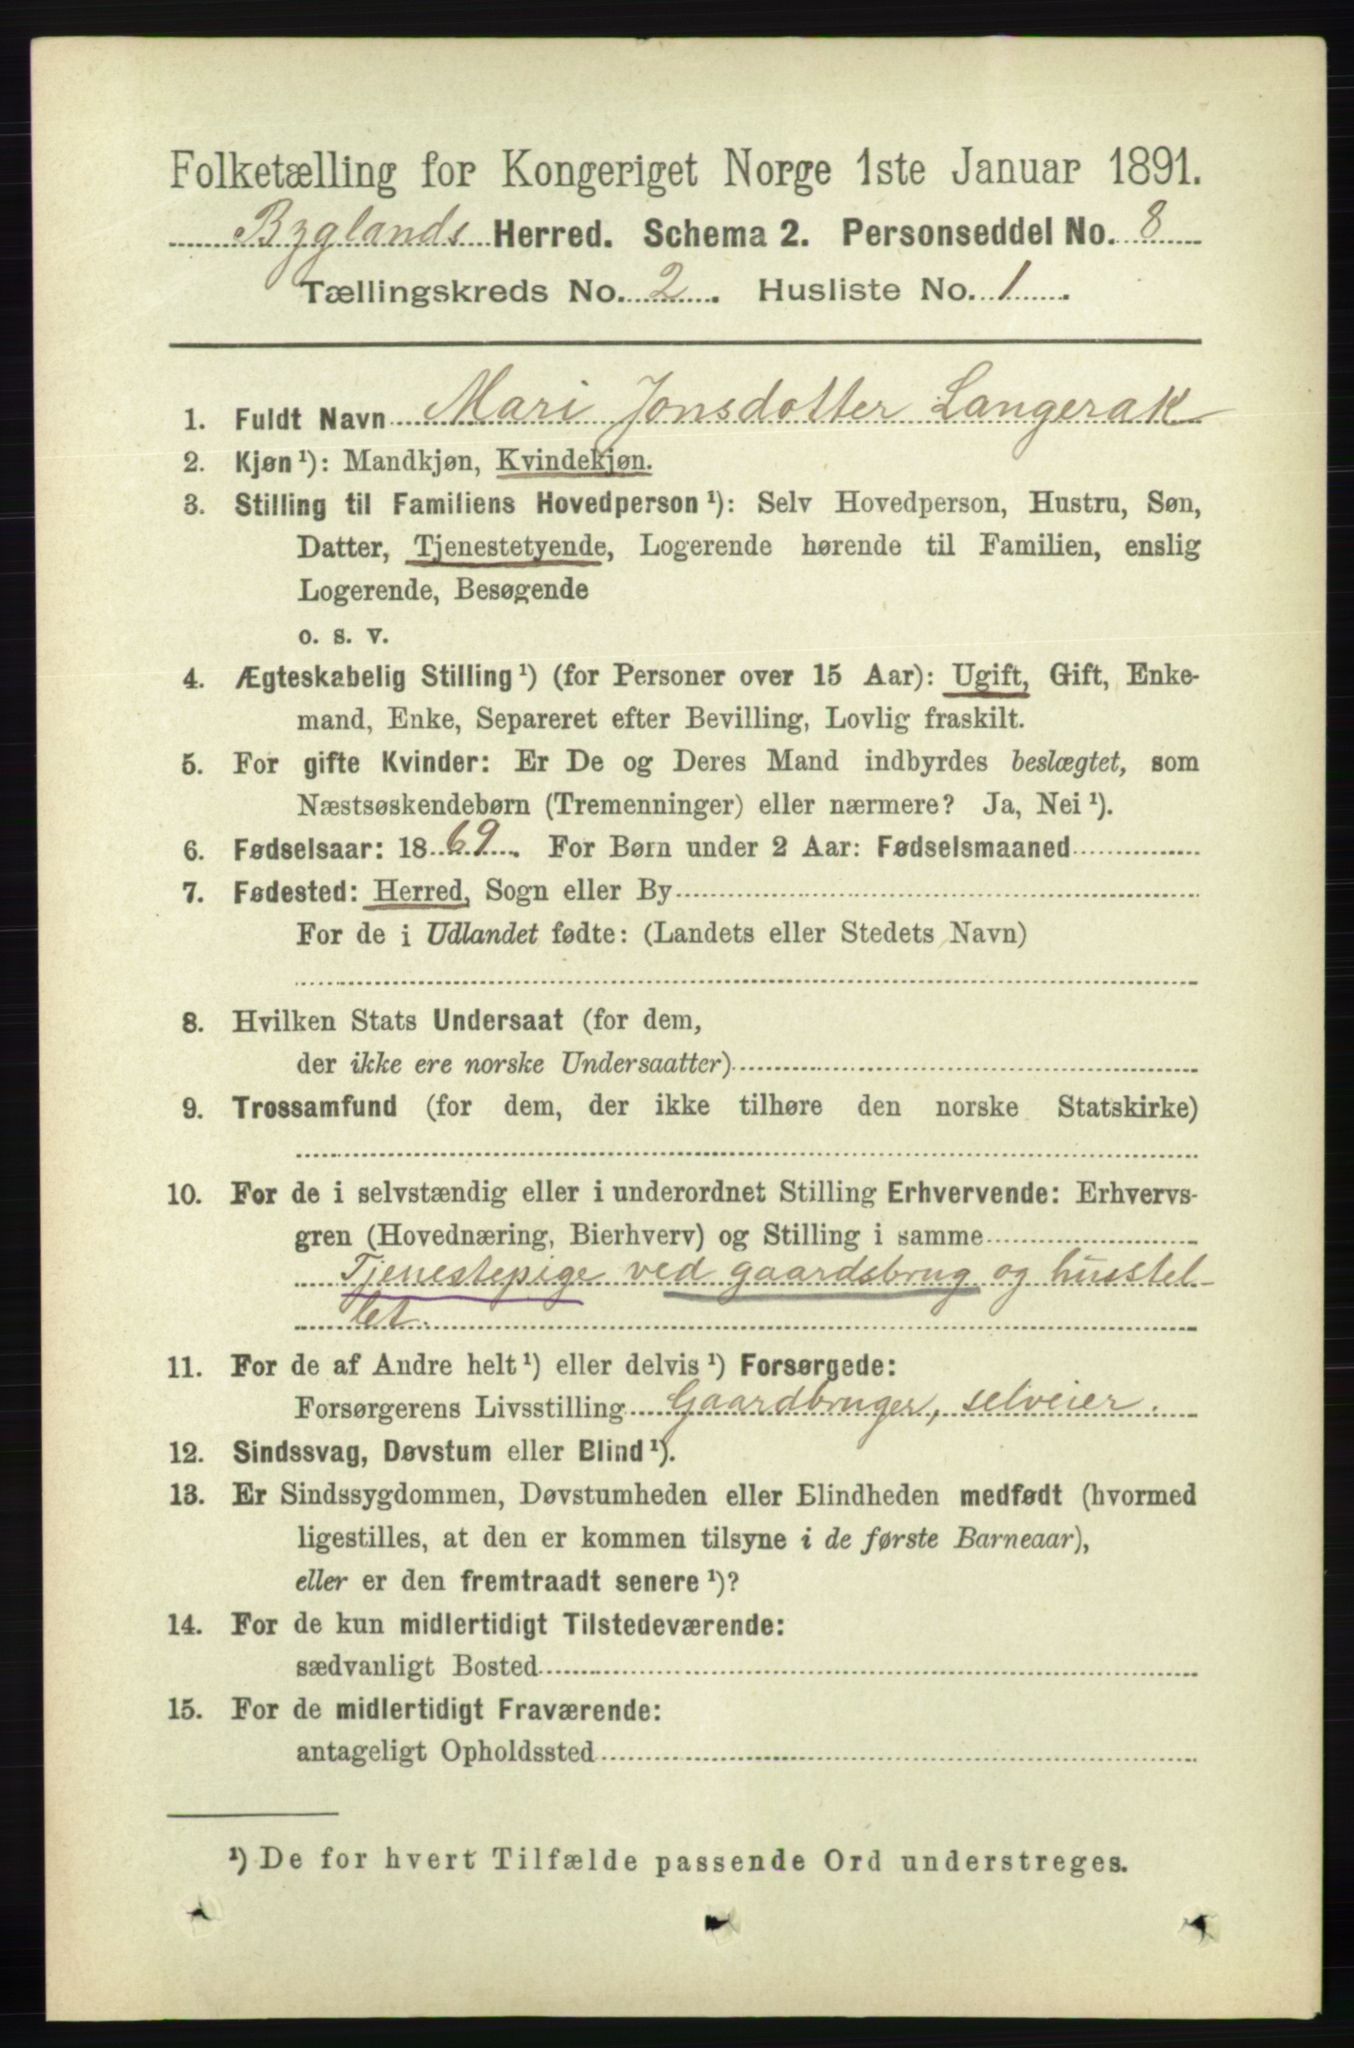 Folketælling for Kongeriget Norge 1ste Januar 1891.
Byglands Herred. Schema 2. Personseddel No. 8
Tællingskreds No. 2. Husliste No. 1.
1. Fuldt Navn Mari Jonsdotter Langerak
2. Kjøn¹): Mandkjøn, Kvindekjøn.
3. Stilling til Familiens Hovedperson¹): Selv Hovedperson, Hustru, Søn,
Datter, Tjenestetyende, Logerende hørende til Familien, enslig
Logerende, Besøgende
o. s. v.
4. Ægteskabelig Stilling¹) (for Personer over 15 Aar): Ugift, Gift, Enke-
mand, Enke, Separeret efter Bevilling, Lovlig fraskilt.
5. For gifte Kvinder: Er De og Deres Mand indbyrdes beslægtet, som
Næstsøskendebørn (Tremenninger) eller nærmere? Ja, Nei¹).
6. Fødselsaar: 1869. For Børn under 2 Aar: Fødselsmaaned
7. Fødested: Herred, Sogn eller By
For de i Udlandet fødte: (Landets eller Stedets Navn)
8. Hvilken Stats Undersaat (for dem,
der ikke ere norske Undersaatter)
9. Trossamfund (for dem, der ikke tilhøre den norske Statskirke)
10. For de i selvstændig eller i underordnet Stilling Erhvervende: Erhvervs-
gren (Hovednæring, Bierhverv) og Stilling i samme
Tjenestepige ved gaardsbrug og husstel-
let.
11. For de af Andre helt¹) eller delvis¹) Forsørgede:
Forsørgerens Livsstilling Gaardbruger, selveier.
12. Sindssvag, Døvstum eller Blind¹).
13. Er Sindssygdommen, Døvstumheden eller Blindheden medfødt (hvormed
ligestilles, at den er kommen tilsyne i de første Barneaar),
eller er den fremtraadt senere¹)?
14. For de kun midlertidigt Tilstedeværende:
sædvanligt Bosted
15. For de midlertidigt Fraværende:
antageligt Opholdssted
¹) De for hvert Tilfælde passende Ord understreges.